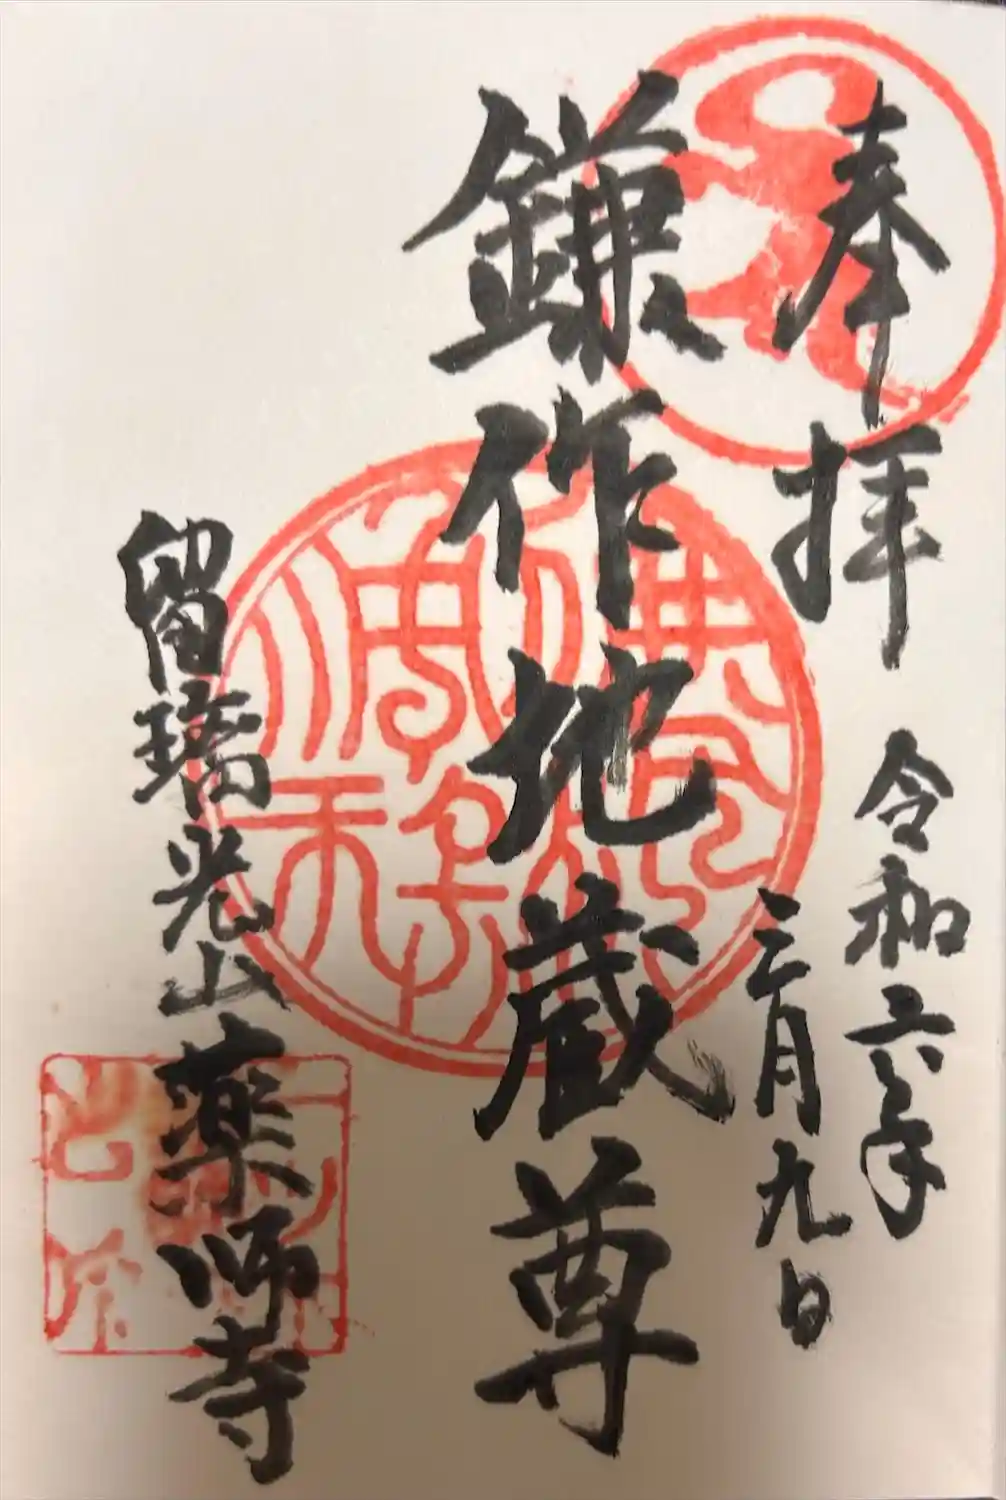 奉拝
令和六年
三月九日
鎌作地蔵尊
瑠璃光山薬師寺